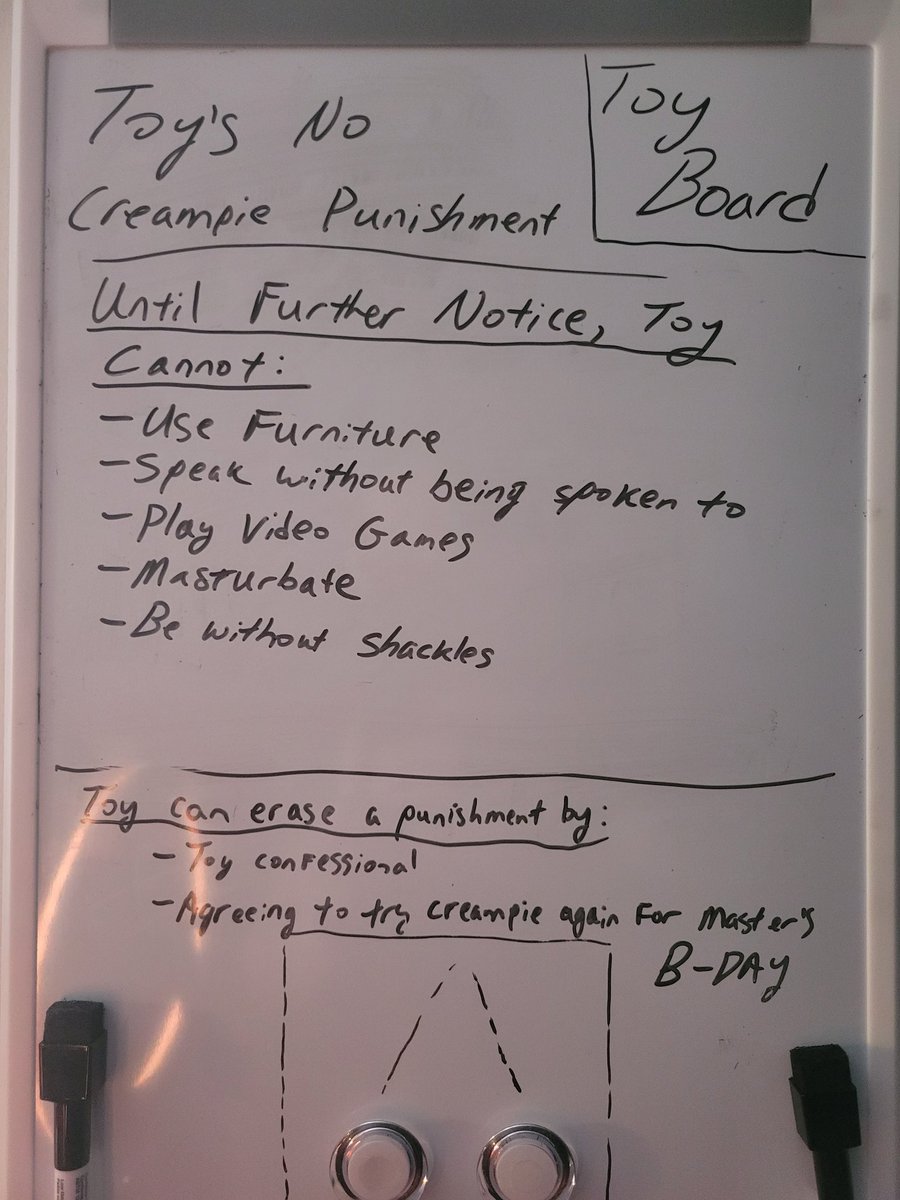 Toy's No
Creampie Punishment
Toy
Board
Until Further Notice, Toy
Cannot:
- Use Furniture
- Speak without being spoken to
- Play Video Games
- Masturbate
- Be without shackles
Toy can erase a punishment by:
- Toy confessional
- Agreeing to try creampie again for Master's
B-DAY